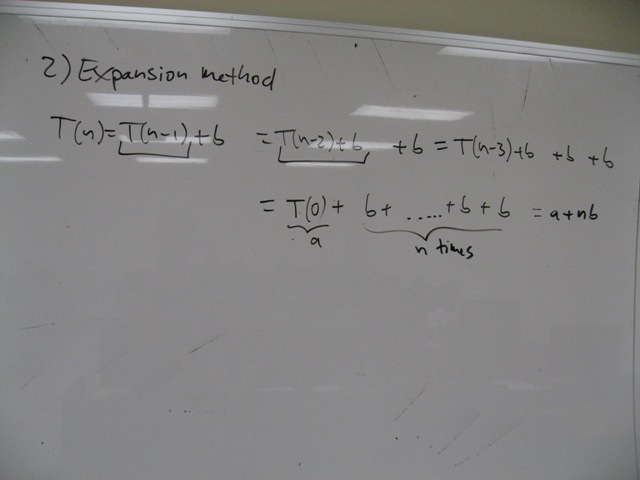 2) Expansion method
T(n)=T(n-1)+b =T(n-2)+b +b = T(n-3)+b +b +b
= T(0)+ b+ .....+b+b = a+nb
a n times